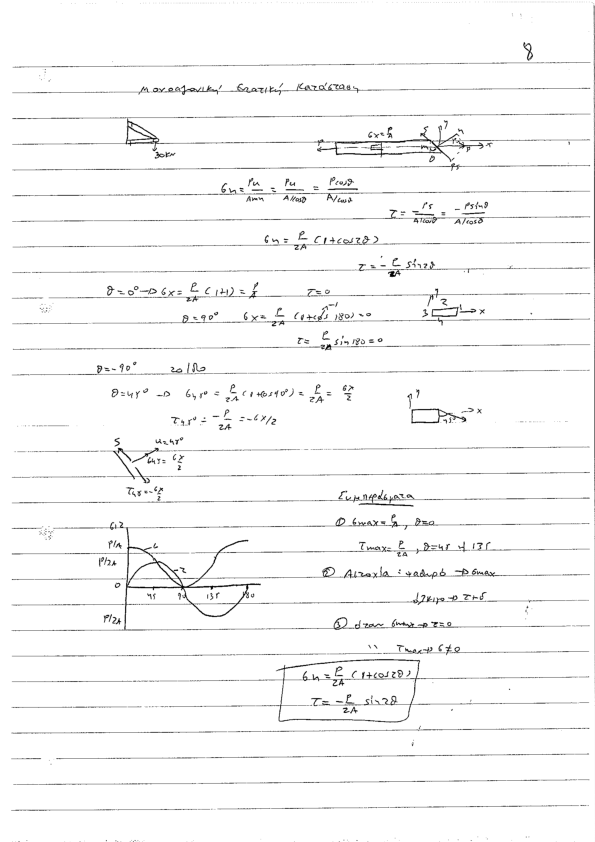 8
Μονοαξονική Εντατική Κατάσταση
30KN
σx = P/A S y n x P
σn = Pn/Aωn = Pn/A/cosθ = Pcosθ/A/cosθ
τ = -Ps/A/cosθ = -Psinθ/A/cosθ
σn = P/2A (1+cos2θ)
τ = -P/2A sin2θ
θ=0° → σx = P/2A (1+1) = P/A τ=0
θ=90° σx = P/2A (1+cos180)=0 -1
τ = P/2A sin180=0
y 2 3 1 x 4
θ=-90°
θ=45° → σ45° = P/2A (1+cos90°) = P/2A = σx/2
τ45° = -P/2A = -σx/2
y x 45°
S n=45°
σ45 = σx/2
τ45 = -σx/2
Συμπεράσματα
① σmax = P/A, θ=0
τmax = P/2A, θ=45 ή 135
② Αστοχία: ψαθυρό → σmax
όλκιμο → τ+σ
③ όταν σmax → τ=0
'' τmax → σ≠0
σ,τ
P/A σ
P/2A τ
0 45 90 135 180
P/2A
σn = P/2A (1+cos2θ)
τ = -P/2A sin2θ